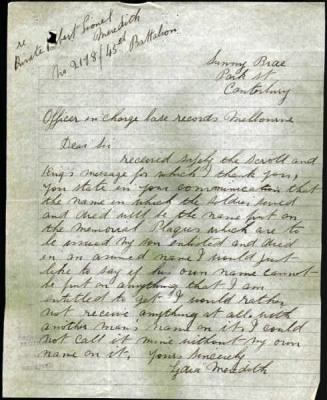 re
Private Albert Lionel
Meredith
No. 2178/45th Battalion
Sunny Brae
Park St
Canterbury
Officer in charge base records Melbourne
Dear Sir
received safely the Scroll and
King's message for which I thank you,
You state in your communication that
the name in which the soldier served
and died will be the name put on
the Memorial Plaques which are to
be issued My son enlisted and died
in an asumed name I would just
like to say if his own name cannot
be put on anything that I am
intitled to get I would rather
not receive anything at all with
another man's name on it, I could
not call it mine without my own
name on it. Yours Sincerely
Lydia Meredith